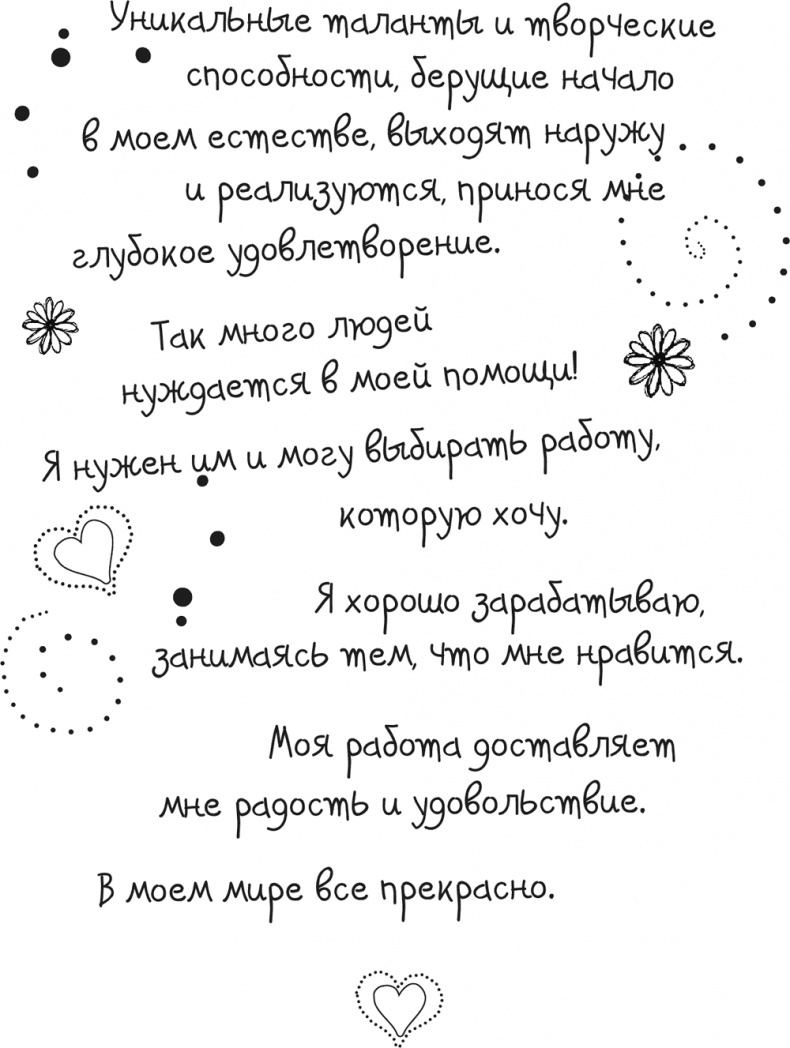 Уникальные таланты и творческие
способности, берущие начало
в моем естестве, выходят наружу
и реализуются, принося мне
глубокое удовлетворение.
Так много людей
нуждается в моей помощи!
Я нужен им и могу выбирать работу,
которую хочу.
Я хорошо зарабатываю,
занимаясь тем, что мне нравится.
Моя работа доставляет
мне радость и удовольствие.
В моем мире все прекрасно.